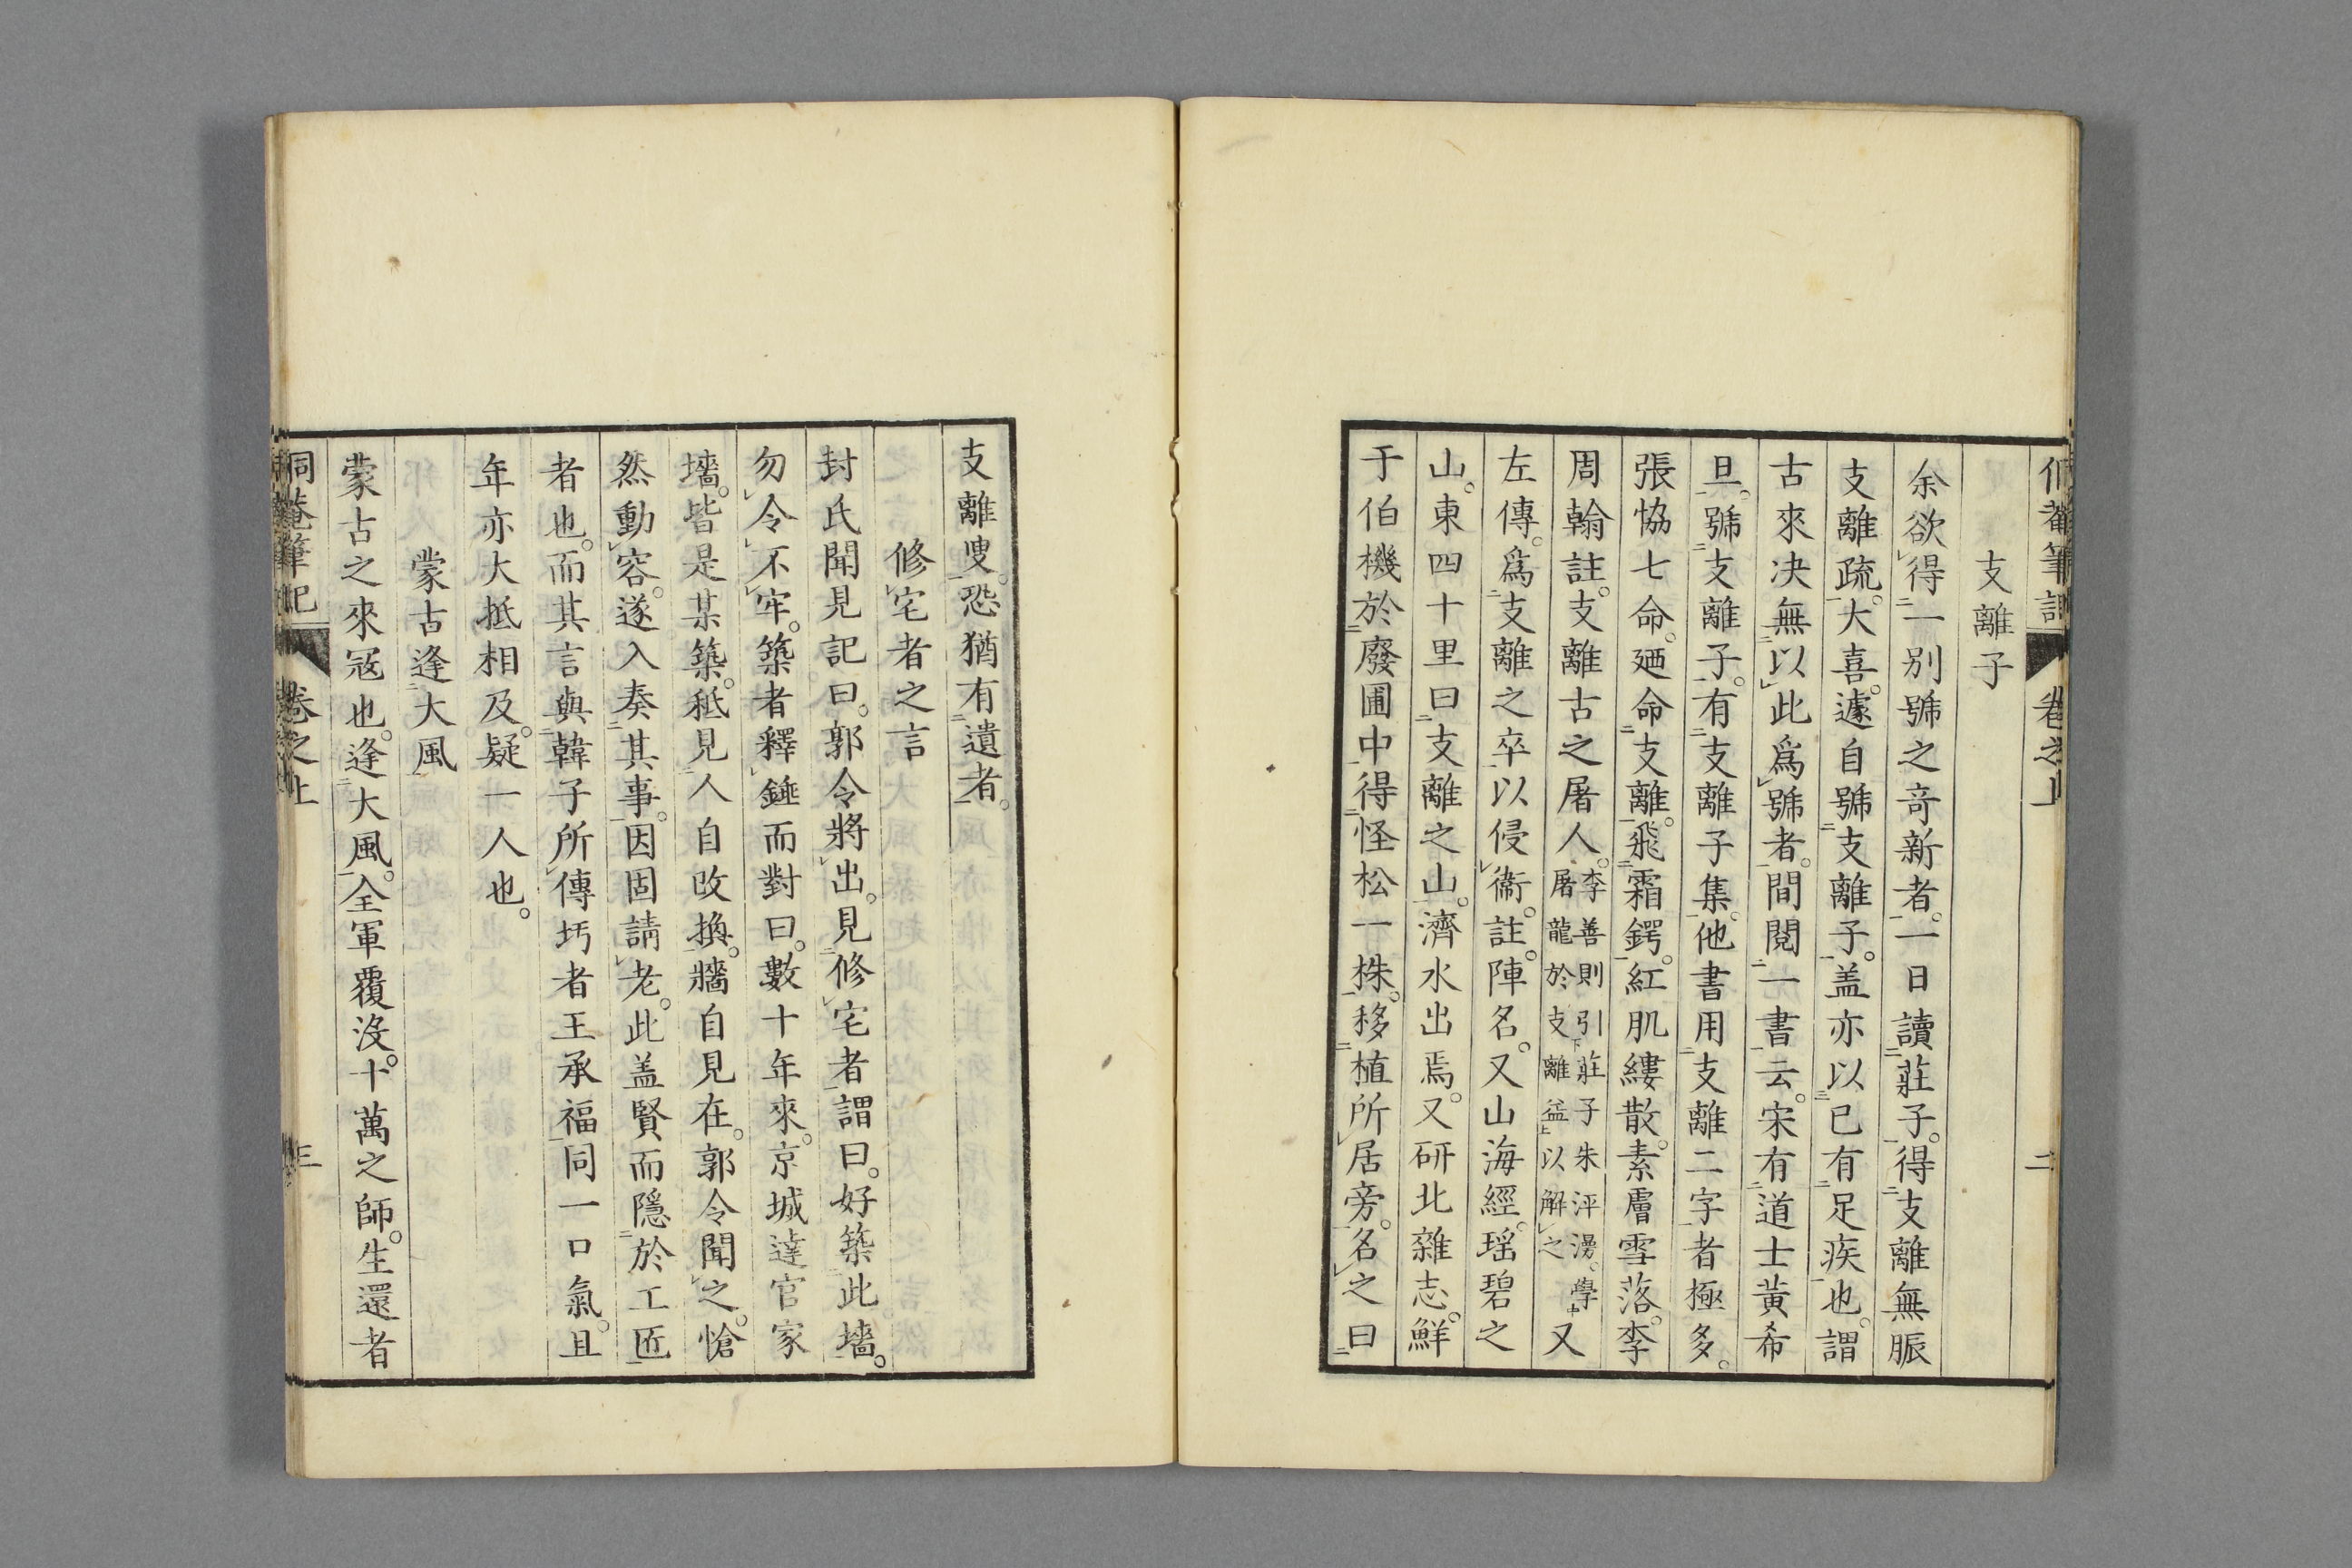 侗菴筆記 卷之上 二
支離子
余欲得一別號之奇新者。一日讀莊子。得支離無脤
支離疏。大喜。遽自號支離子。盖亦以已有足疾也。謂
古來决無以此爲號者。間閱一書云。宋有道士黃希
旦。號支離子。有支離子集。他書用支離二字者極多。
張恊七命。廼命支離。飛霜鍔。紅肌縷散。素膚雪落。李
周翰註。支離古之屠人。李善則引莊子朱泙漫。學屠龍於支離益以解之又
左傳。爲支離之卒。以侵衞。註。陣名。又山海經。瑶碧之
山。東四十里曰支離之山。濟水出焉。又研北雜志。鮮
于伯機於廢圃中得怪松一株。移植所居旁。名之曰
支離叟。恐猶有遺者。
修宅者之言
封氏聞見記曰。郭令將出。見修宅者謂曰。好築此墻。
勿令不牢。築者釋錘而對曰。數十年來。京城達官家
墻。皆是某築。秪見人自改換。牆自見在。郭令聞之。愴
然動容。遂入奏其事。因固請老。此盖賢而隱於工匠
者也。而其言與韓子所傳圬者王承福同一口氣。且
年亦大抵相及。疑一人也。
蒙古逢大風
蒙古之來冦也。逢大風。全軍覆沒。十萬之師。生還者
侗菴筆記 卷之上 三